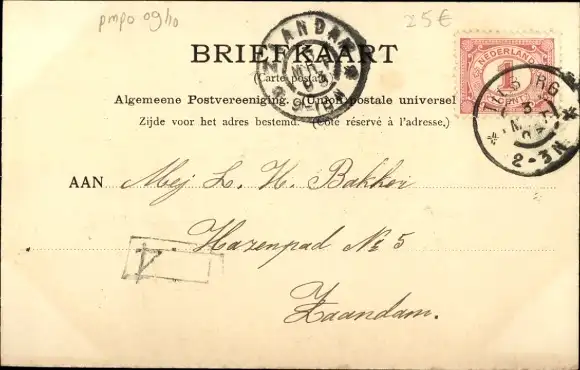 pmpo 09/10
25€
BRIEFKAART
(Carte postale)
Algemeene Postvereeniging. (Union postale universelle)
Zijde voor het adres bestemd. (Côté réservé à l'adresse.)
NEDERLAND
1
CENT
ZAANDAM
TILBURG
2-3N
AAN Mej L. H. Bakker
Hazenpad № 5
Zaandam.